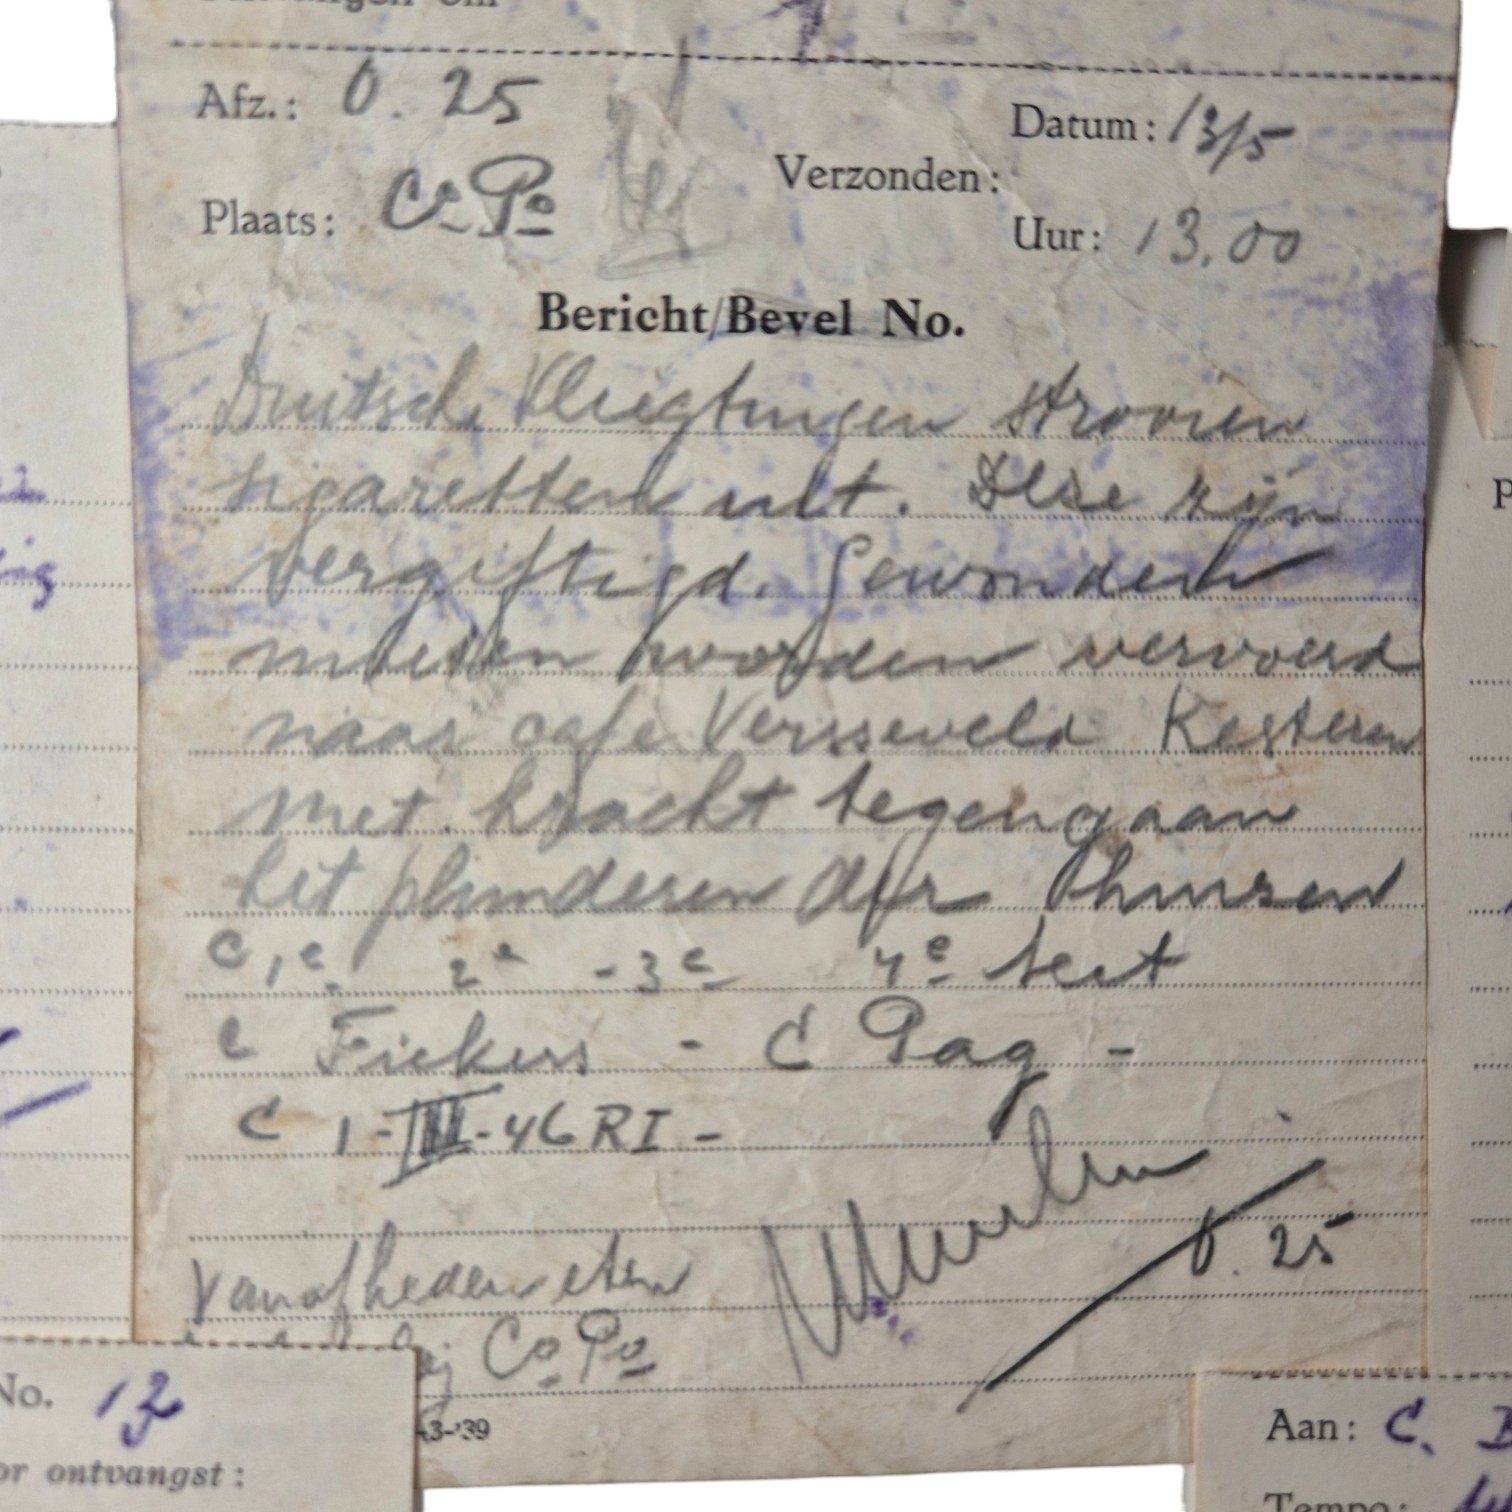 Afz.: O. 25
Datum: 13/5
Verzonden:
Plaats: Co Po
Uur: 13.00
Bericht/Bevel No.
Duitsche Vliegtuigen strooien
sigaretten uit. Deze zijn
vergiftigd. Gewonden
moeten worden vervoerd
naar cafe Versseveld Kesteren
met kracht tegengaan
het plunderen der Huizen
C 1e 2e - 3e 4e sect
C Fickers - C Pag -
C 1-III-46 RI -
O. 25
Vanaf heden eten
bij Co Po
43-'39
No. 13
or ontvangst:
Aan: C.
Tempo: